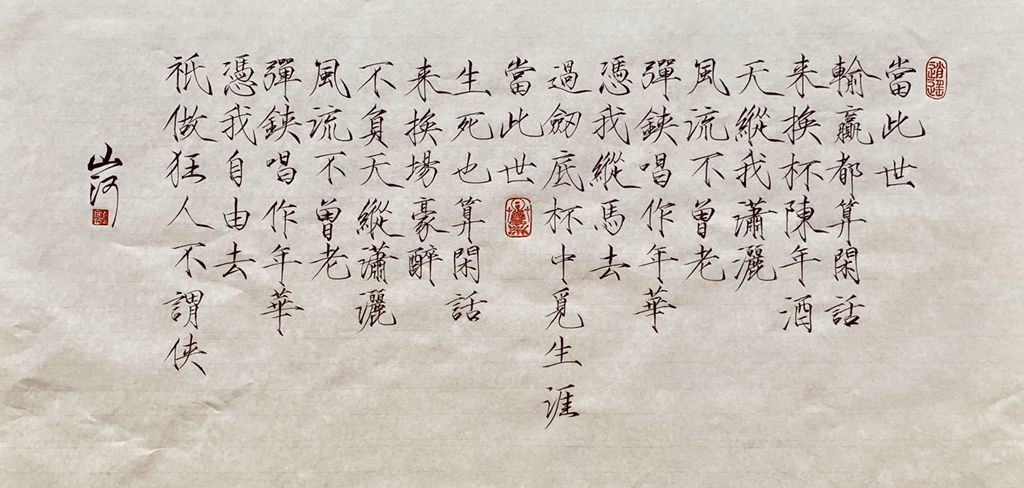 逍遥
當此世
輸贏都算閑話
来換杯陳年酒
天縱我瀟灑
風流不曾老
彈鋏唱作年華
憑我縱馬去
過劒底杯中覓生涯
當此世
生死也算閑話
来換場豪醉
不負天縱瀟灑
風流不曾老
彈鋏唱作年華
憑我自由去
祇做狂人不謂俠
山河